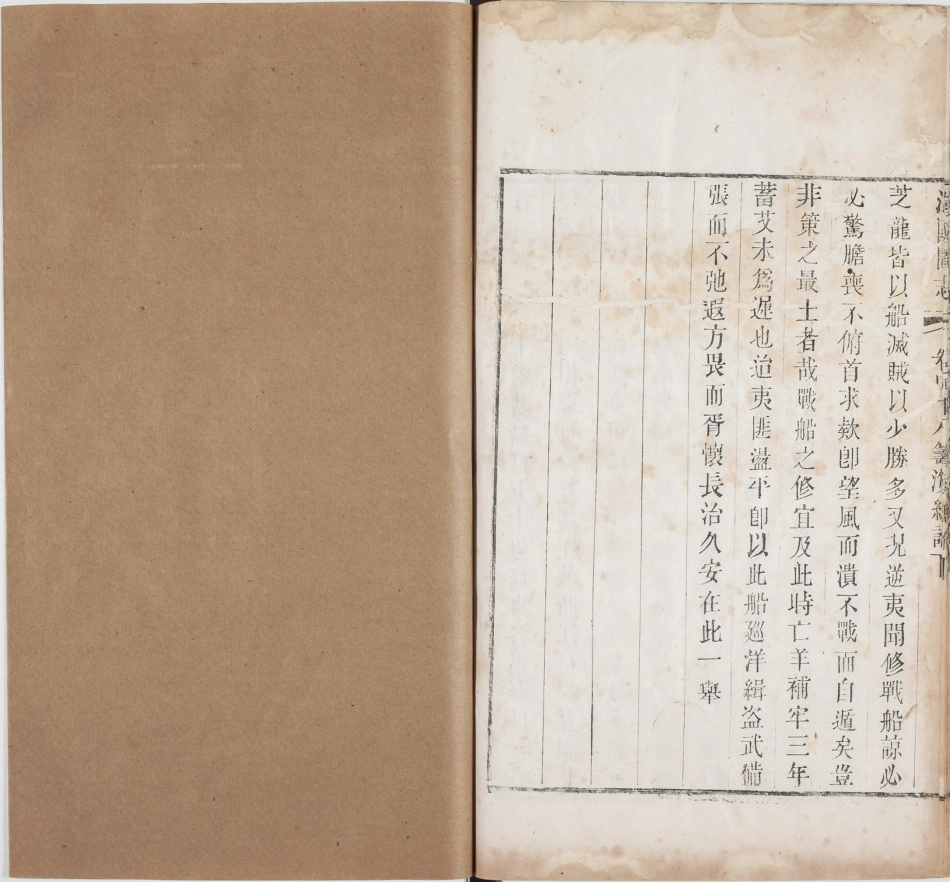 海國圖志 卷四十八籌海總論下
芝龍皆以船滅賊以少勝多又況逆夷聞修戰船諒必
必驚膽喪不俯首求欵卽望風而潰不戰而自遁矣豈
非策之最上者哉戰船之修宜及此時亡羊補牢三年
蓄艾未爲遲也迨夷匪盪平卽以此船廵洋緝盗武備
張而不弛遐方畏而胥懷長治久安在此一舉